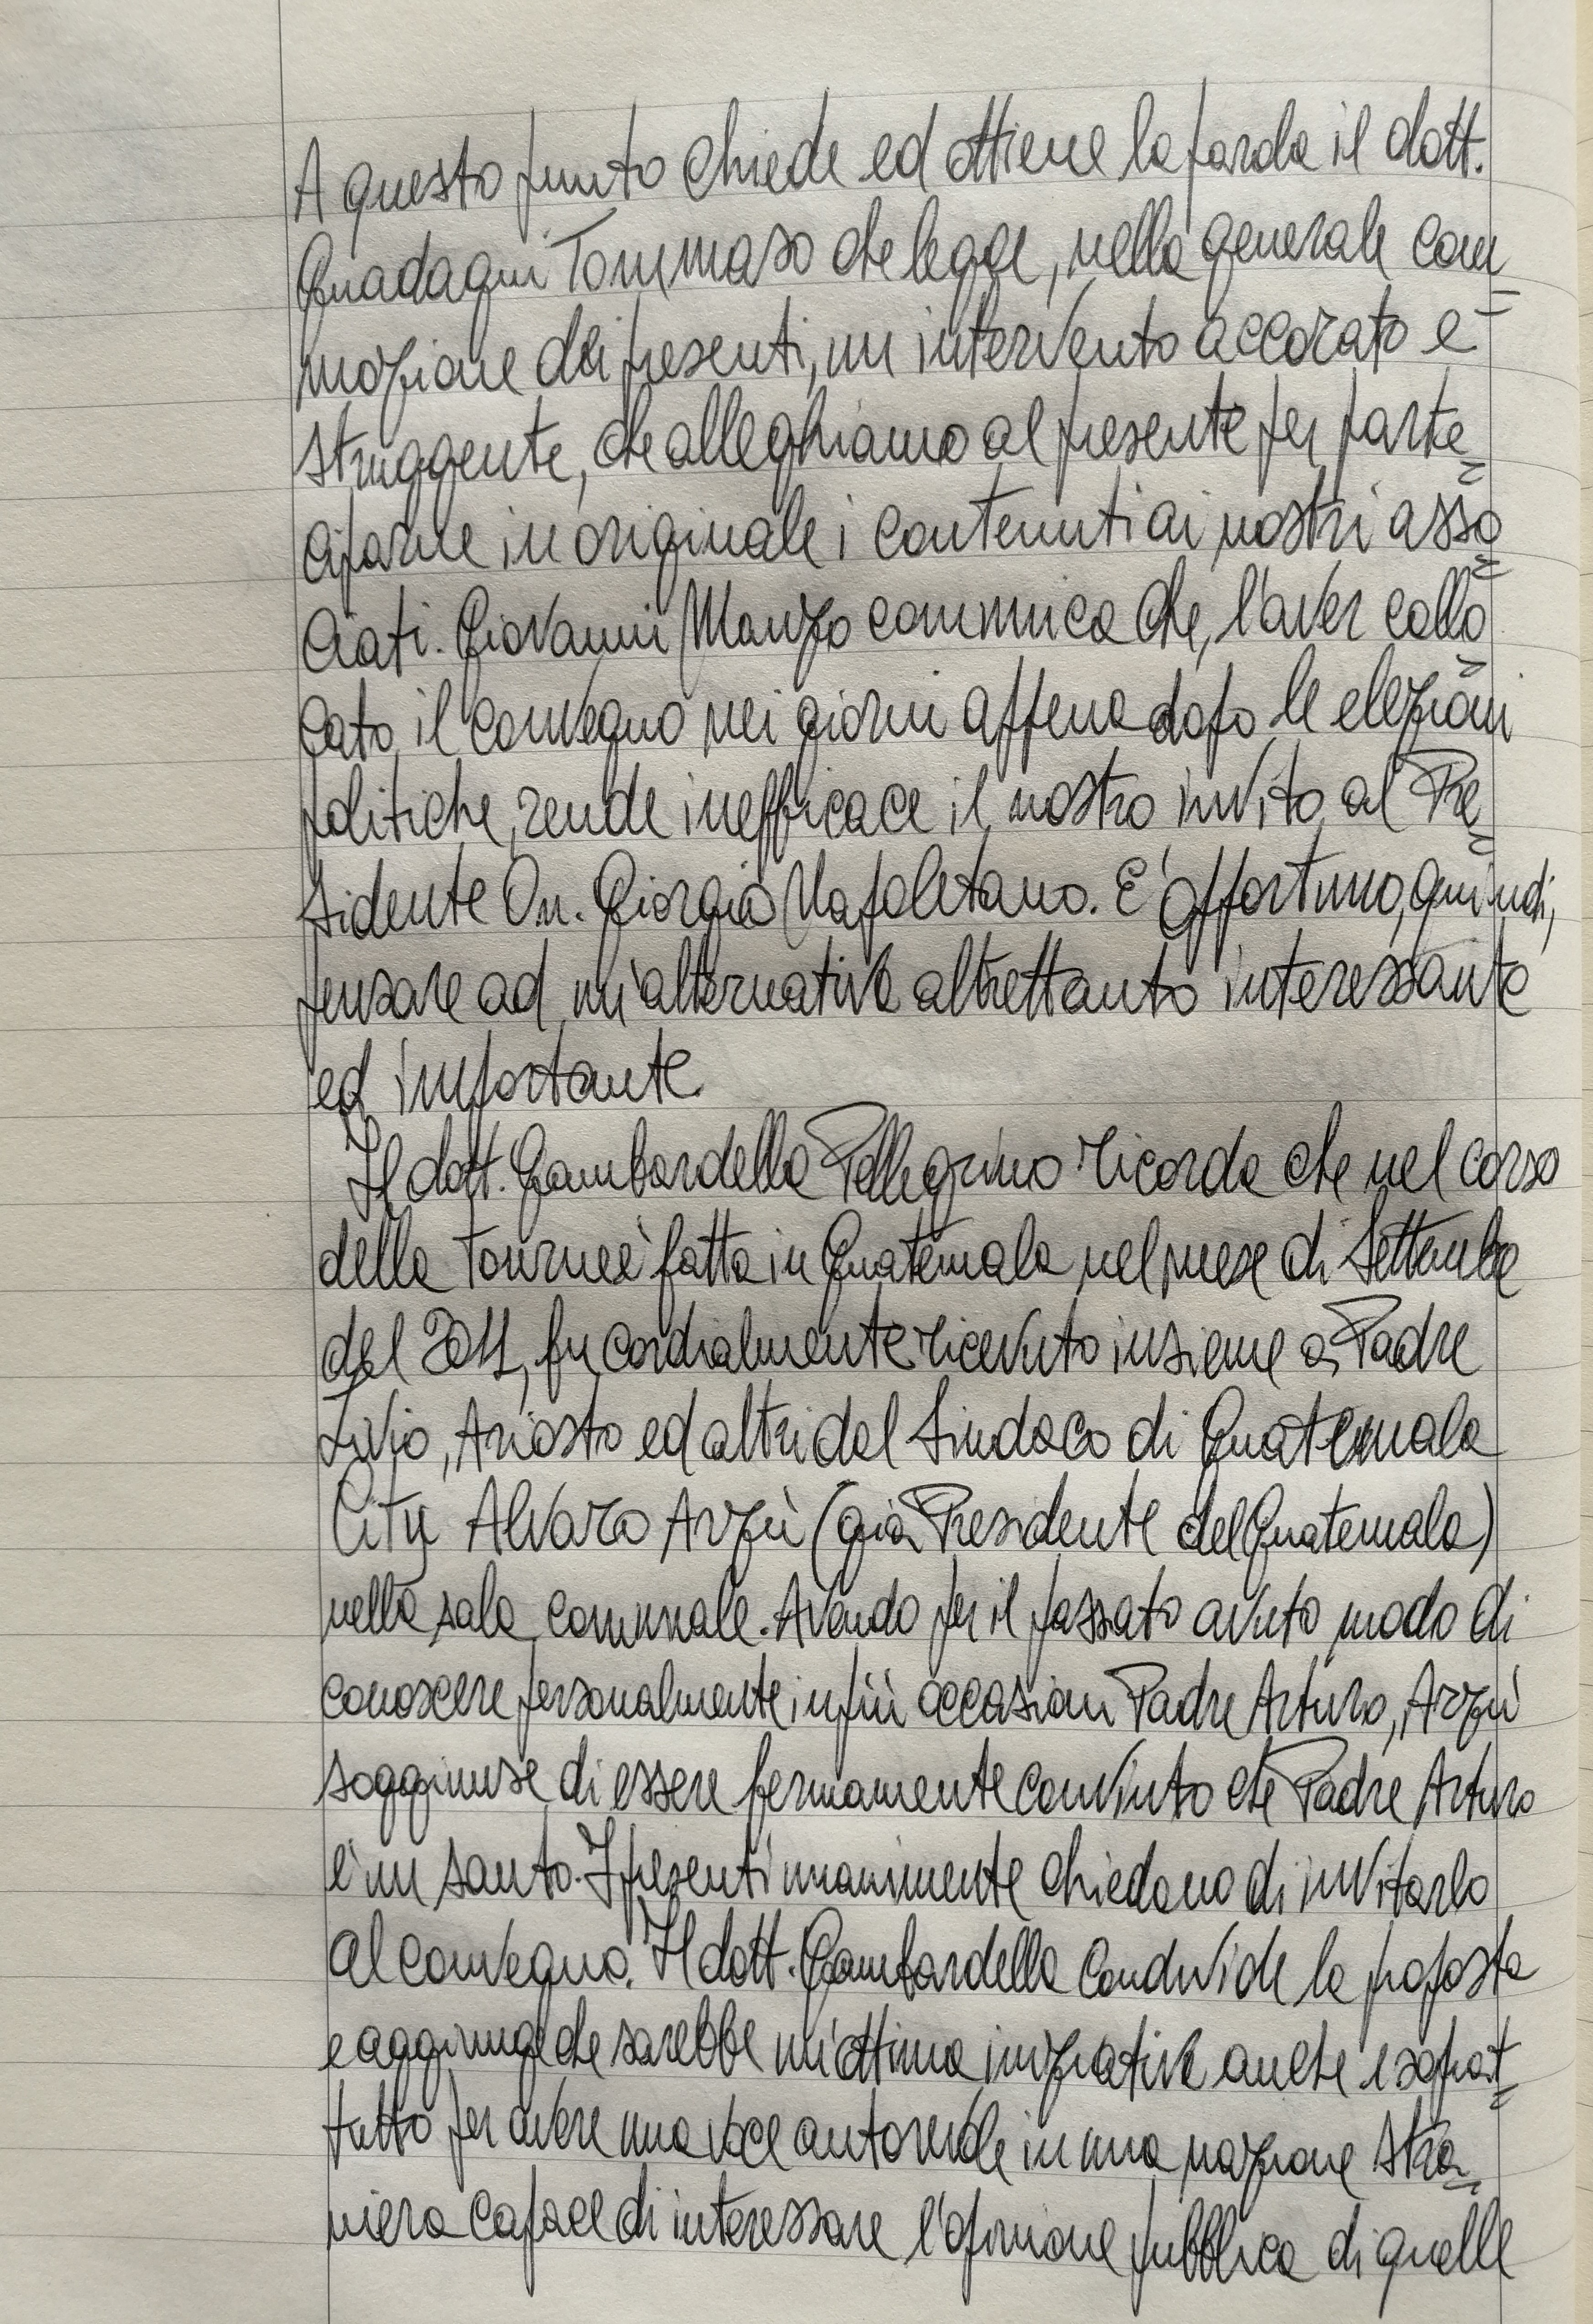 A questo punto chiede ed ottiene la parola il dott.
Guadagni Tommaso che legge, nella generale com=
mozione dei presenti, un intervento accorato e
struggente, che alleghiamo al presente per parte=
ciparne in originale i contenuti ai nostri asso=
ciati. Giovanni Manzo comunica che, l'aver collo=
cato il convegno nei giorni appena dopo le elezioni
politiche, rende inefficace il nostro invito al Pre=
sidente On. Giorgio Napoletano. E' opportuno, quindi,
pensare ad un'alternativa altrettanto interessante
ed importante.
Il dott. Gambardella Pellegrino ricorda che nel corso
della Tourneè fatta in Guatemala nel mese di Settembre
del 2011, fu cordialmente ricevuto insieme a Padre
Livio, Ariosto ed altri dal Sindaco di Guatemala
City Alvaro Arzù (già Presidente del Guatemala)
nella sala comunale. Avendo per il passato avuto modo di
conoscere personalmente in più occasioni Padre Arturo, Arzù
soggiunse di essere fermamente convinto che Padre Arturo
è un santo. I presenti unanimente chiedono di invitarlo
al convegno. Il dott. Gambardella condivide la proposta
e aggiunge che sarebbe un'ottima iniziativa anche e soprat=
tutto per avere una voce autorevole in una nazione stra=
niera capace di interessare l'opinione pubblica di quelle